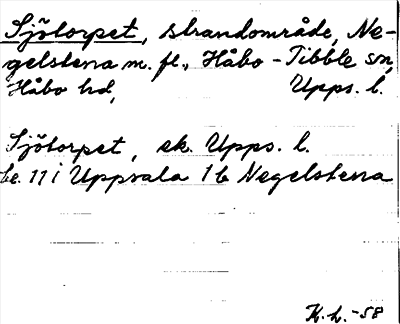 Sjötorpet, strandområde, Ne-
gelstena m. fl., Håbo-Tibble sn,
Håbo hd, Upps. l.
Sjötorpet, ek. Upps. l.
be. 11 i Uppsala 1 b Negelstena
K. h. -58